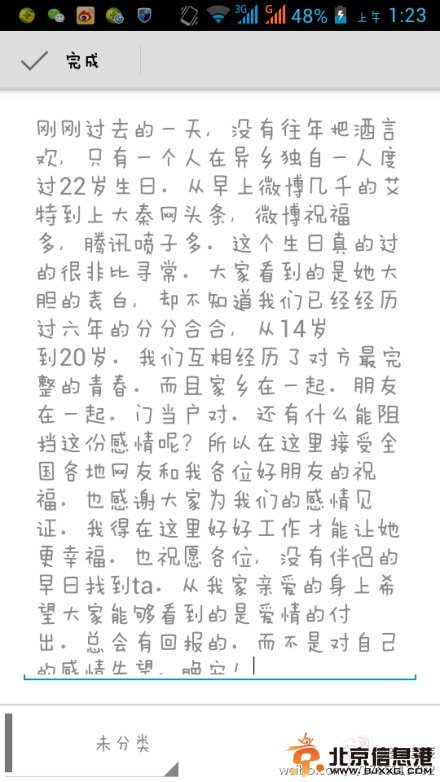 3G
G
48%
上午 1:23
完成
刚刚过去的一天，没有往年把酒言
欢，只有一个人在异乡独自一人度
过22岁生日。从早上微博几千的艾
特到上大秦网头条，微博祝福
多，腾讯喷子多。这个生日真的过
的很非比寻常。大家看到的是她大
胆的表白，却不知道我们已经经历
过六年的分分合合，从14岁
到20岁。我们互相经历了对方最完
整的青春。而且家乡在一起。朋友
在一起。门当户对。还有什么能阻
挡这份感情呢？所以在这里接受全
国各地网友和我各位好朋友的祝
福。也感谢大家为我们的感情见
证。我得在这里好好工作才能让她
更幸福。也祝愿各位，没有伴侣的
早日找到ta。从我家亲爱的身上希
望大家能够看到的是爱情的付
出。总会有回报的。而不是对自己
的感情失望。晚安！
未分类
weibo.co
北京信息港
www.BJXXG.COM